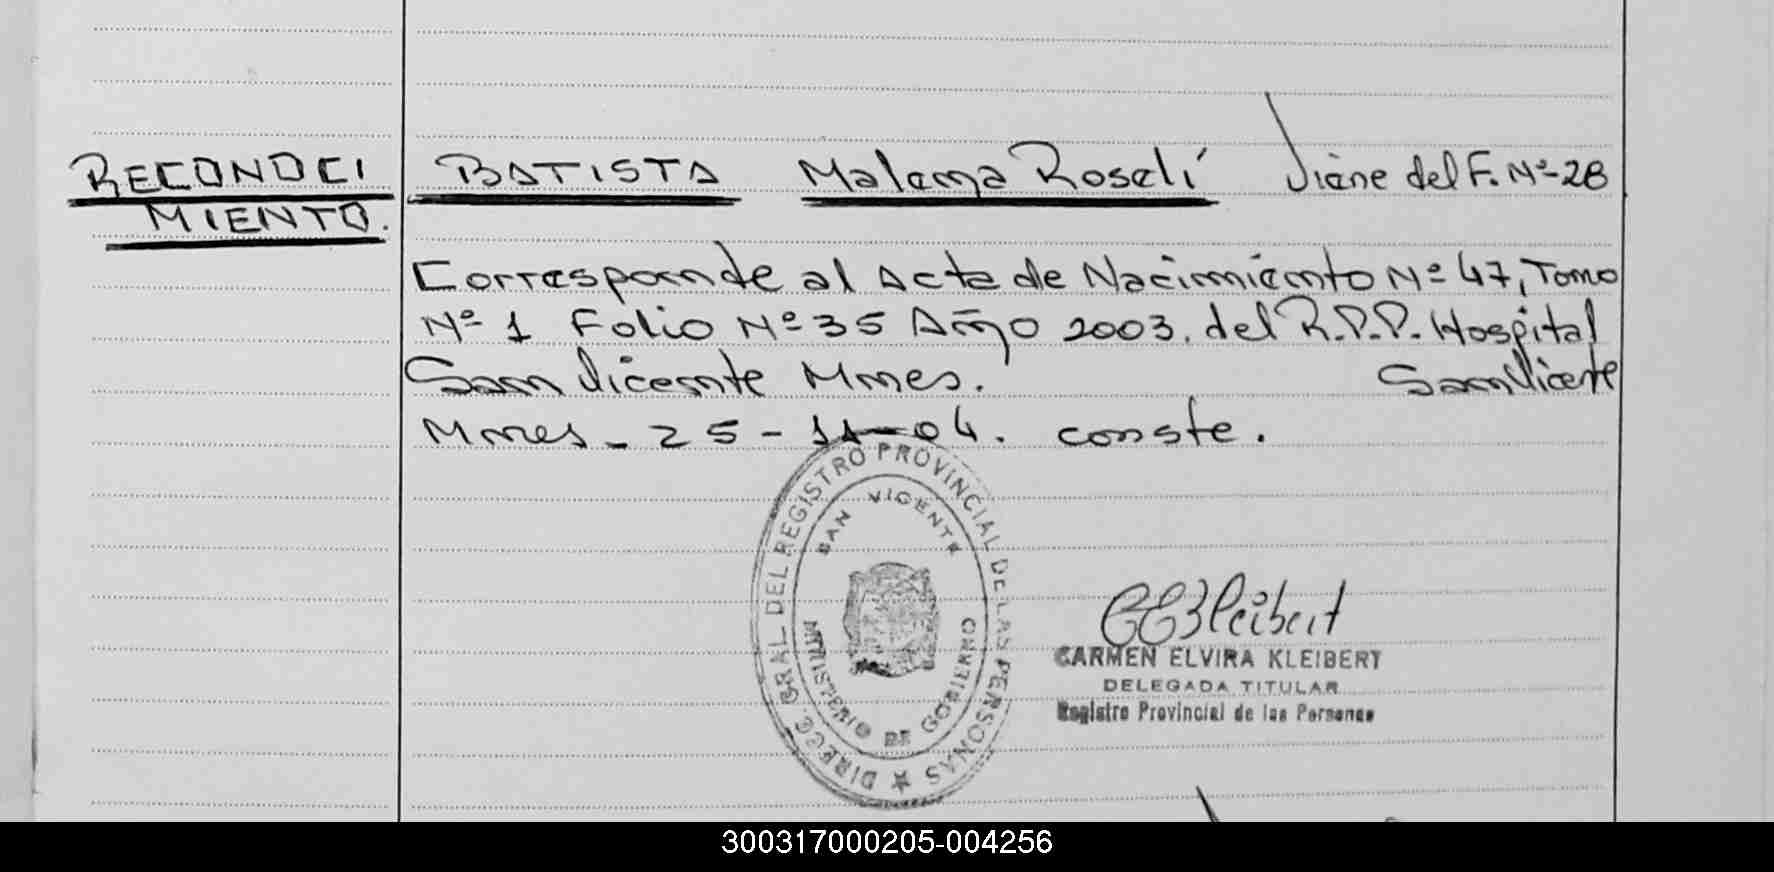 RECONOCI
MIENTO.
BATISTA Malena Roselí Viene del F. Nº-28
Corresponde al Acta de Nacimiento Nº 47, Tomo
Nº 1 Folio Nº 35 Año 2003. del R.P.P. Hospital
San Vicente Mnes. San Vicente
Mnes - 25 - 11-04. conste.
DIRECC. GRAL DEL REGISTRO PROVINCIAL DE LAS PERSONAS
SAN VICENTE
MINISTERIO DE GOBIERNO
CEKleibert
CARMEN ELVIRA KLEIBERT
DELEGADA TITULAR
Registro Provincial de las Personas
300317000205-004256